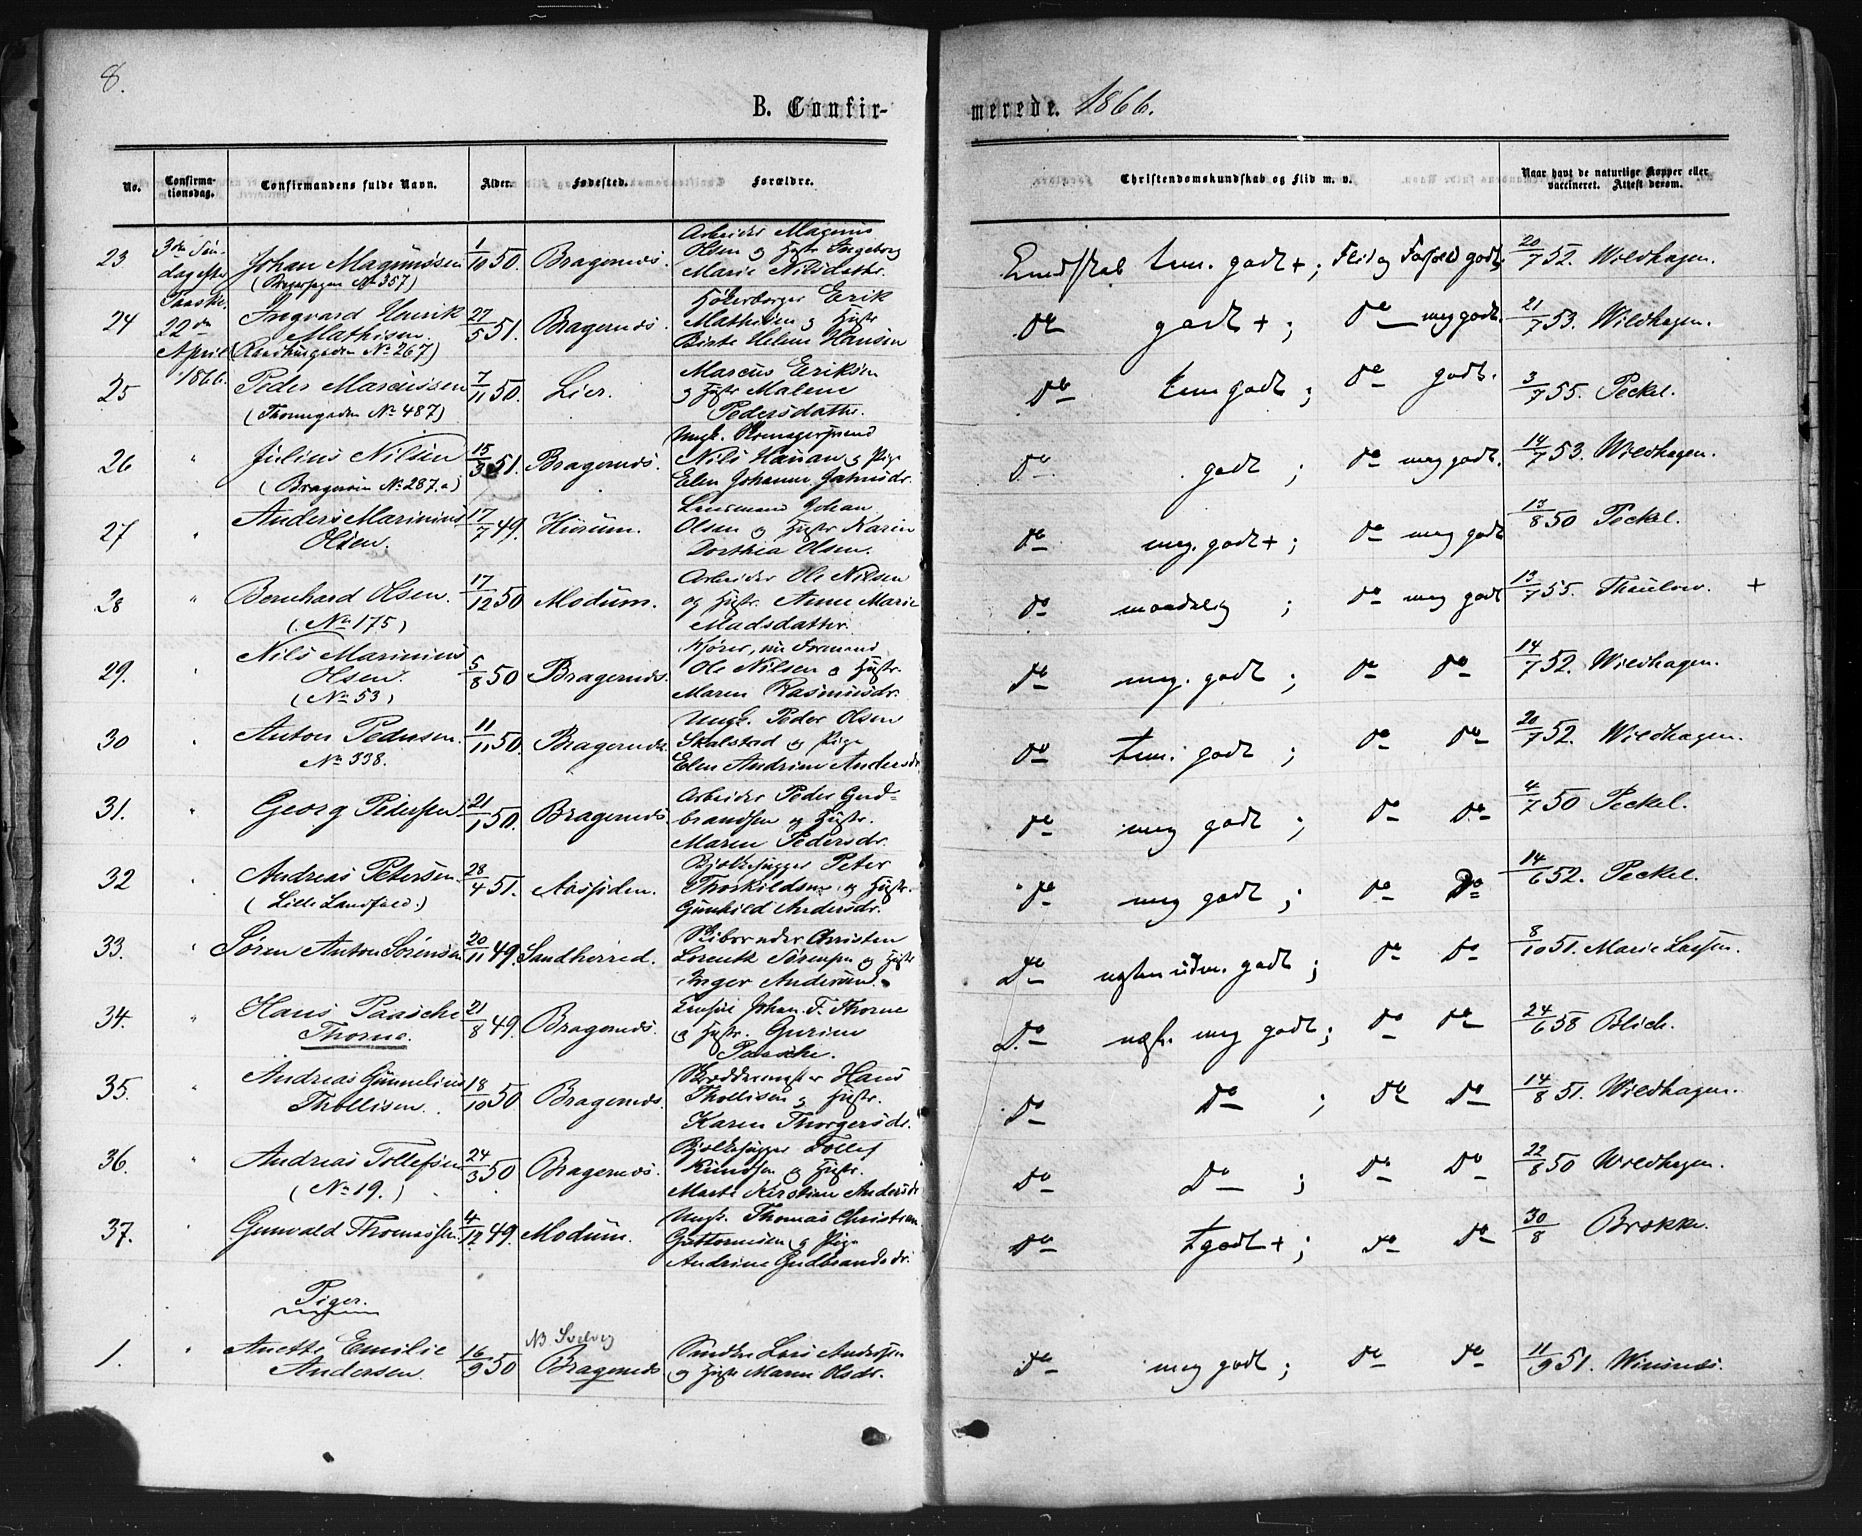 8.
B. Confirmerede. 1866.
No. Confirmationsdag. Confirmandens fulde Navn. Alder. Fødested. Forældre. Christendomskundskab og Flid m. v. Naar havt de naturlige Kopper eller vaccineret. Attest derom.
3die Søndag efter Paaske 22de April 1866.
23 Johan Magnussen 1/10 50. Bragernes. Arbeider Magnus
Olsen og Hustr. Ingeborg
Marie Nilsdatter.
Kundskab tem. godt +; Flid og Forhold godt. 20/7 52. Wildhagen.
24 Ingvard Henrik
Mathisen. 27/5 51. Bragernes. Erik
Mathisen og Hustr.
Birte Helene Hansen
(Raadhusgaden No 267)
Do godt +; Do meg godt. 21/7 53. Wildhagen.
25 Peder Marcussen 7/11 50. Lier. Marcus Eriksen
og Hustr Malene
Pedersdatter.
(Thornegaden No 487)
Do tem godt; Do godt. 3/7 55. Peckel.
26 " Julius Nilsen 15/3 51. Bragernes. Ungk.
Nils Hansen og Pige
Elen Johanne
(Bragerøen No 287.a)
Do godt; Do meg godt. 14/7 53. Wildhagen.
27 " Anders Marinius
Olsen. 17/7 49. Hurum. Lensmand Johan
Olsen og Hustr Karen
Dorthea Olsen.
Do meg. godt +; Do meg godt 13/8 50 Peckel.
28 " Bernhard Olsen. 17/12 50 Modum. Arbeider Ole Nilsen
og Hustr. Anne Marie
Madsdatter.
(No 175)
Do maadelig; Do meg godt 13/7 55. Thaulow. +
29. " Nils Marinius
Olsen.
(No 53) 5/8 50 Bragernes.
Ole Nilsen og Hustr.
Maren Rasmusdr.
Do meg. godt; Do Do 14/7 52. Wildhagen.
30 " Anton Pedersen.
No 338. 11/11 50. Bragernes. Ungk. Peder Olsen
Skalstad og Pige
Elen Andrine Andersdr
Do tem. godt; Do Do 20/7 52. Wildhagen.
31. " Georg Pedersen 21/1 50. Bragernes. Arbeider Peder Gud-
brandsen og Hustr.
Maren Pedersdr.
Do meg godt; Do Do 4/7 50 Peckel.
32 " Andreas Petersen.
(Lille Landfald.) 28/4 51. Aassiden. Bjelkehugger Peter
Thorkildsen og Hustr.
Gunhild Andersdr.
Do meg godt; Do Do 14/6 52. Peckel.
33. " Søren Anton Sørensen 20/11 49. Sandherred. Christen
Lorentz Sørensen og Hustr
Inger Andersen.
Do næsten udm. godt; Do Do 8/10 51. Marie Lassen.
34. " Hans Paasche
Thorne. 21/8 49. Bragernes. Johan F. Thorne
og Hustr. Gurine
Paasche.
Do næst. meg godt; Do Do 24/6 58 Blich.
35. " Andreas Gunnelius
Thollisen. 18/10 50 Bragernes. Hans
Thollisen og Hustr.
Karen Thorgersdr.
Do Do; Do Do 14/8 51. Wildhagen.
36. " Andreas Tollefsen
(No 19.) 24/3 50 Bragernes. Bjelkehugger Tollef
Knudsen og Hustr.
Marte Kirstine Andersdr
Do Do; Do Do 22/8 50 Wildhagen.
37. " Gunvald Thomassen. 4/12 49. Modum. Ungk. Thomas Christian
Guttormsen og Pige
Andrine Gudbrandsdr.
Do t godt +; Do Do 30/8 Brokke.
Piger.
1. " Anette Emilie
Andersen. 16/9 50 NB Svelvig
Bragernes Lars Andersen
og Hustr Maren Olsdr.
Do meg godt; Do Do 11/9 51.